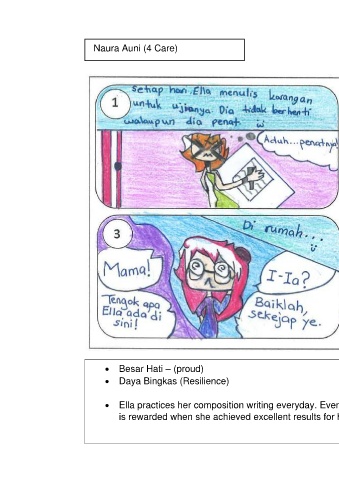 Naura Auni (4 Care)
1
setiap hari Ella menulis karangan
untuk ujianya Dia tidak berhenti
walaupun dia penat.
Aduh...penatnya!
3
Di rumah...
Mama!
I-Ia?
Tengok apa
Ella ada di
sini!
Baiklah,
sekejap ye.
Besar Hati – (proud)
Daya Bingkas (Resilience)
Ella practices her composition writing everyday. Even
is rewarded when she achieved excellent results for